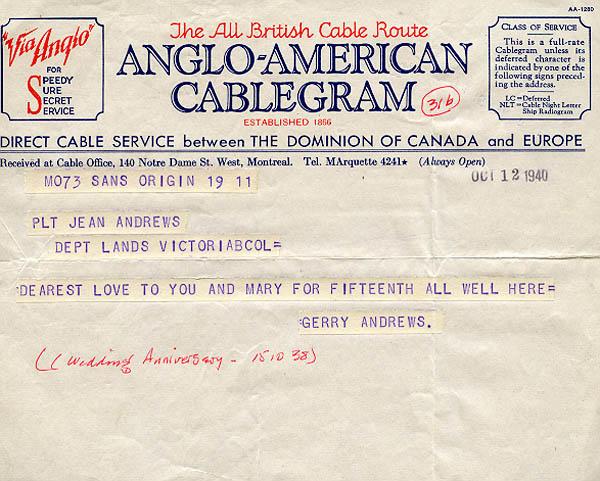 AA-1280
"Via Anglo"
FOR
SPEEDY
SURE
SECRET
SERVICE
The All British Cable Route
ANGLO-AMERICAN
CABLEGRAM
316
ESTABLISHED 1866
CLASS OF SERVICE
This is a full-rate
Cablegram unless its
deferred character is
indicated by one of the
following signs preced-
ing the address.
LC = Deferred
NLT = Cable Night Letter
Ship Radiogram
DIRECT CABLE SERVICE between THE DOMINION OF CANADA and EUROPE
Received at Cable Office, 140 Notre Dame St. West, Montreal. Tel. MArquette 4241★ (Always Open)
MO73 SANS ORIGIN 19 11
OCT 12 1940
PLT JEAN ANDREWS
DEPT LANDS VICTORIABCOL=
:DEAREST LOVE TO YOU AND MARY FOR FIFTEENTH ALL WELL HERE=
:GERRY ANDREWS.
((Wedding Anniversary - 15 10 38)